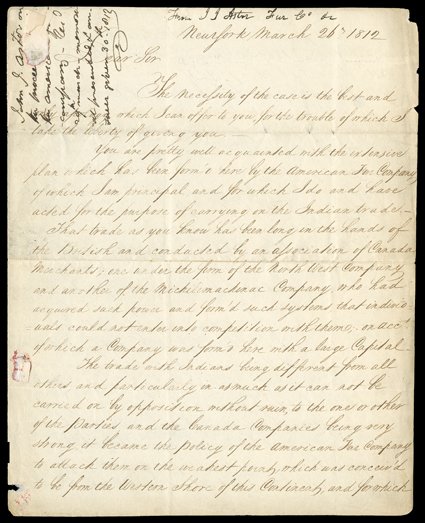 From J J Astor Fur Co
New York March 26th 1812
Dear Sir
The Necessity of the case is the best and
which I can offer to you for the trouble of which I
take the liberty of given you
You are pretty well acquainted with the extensive
plan which has been form'd here by the American Fur Company
of which I am principal and for which I do and have
acted for the purpose of carrying on the Indian trade.—
That trade as you know has been long in the hands of
the British and conducted by an association of Canada
Merchants, one under the firm of the North West Company
and another of the Michilimackinac Company who had
acquired such power and form'd such systems that individ-
uals could not enter into competition with them, on acct
of which a Company was form'd here with a large Capital
The trade with Indians being different from all
others and particularly in as much as it can not be
carried on by opposition without ruin, to the one or other
of the Parties, and the Canada Companies being very
strong it became the policy of the American Fur Company
to attack them on the weakest point, which was conceiv'd
to be from the Western Shore of this Continent, and for which
John J. Astor on
the American
Company